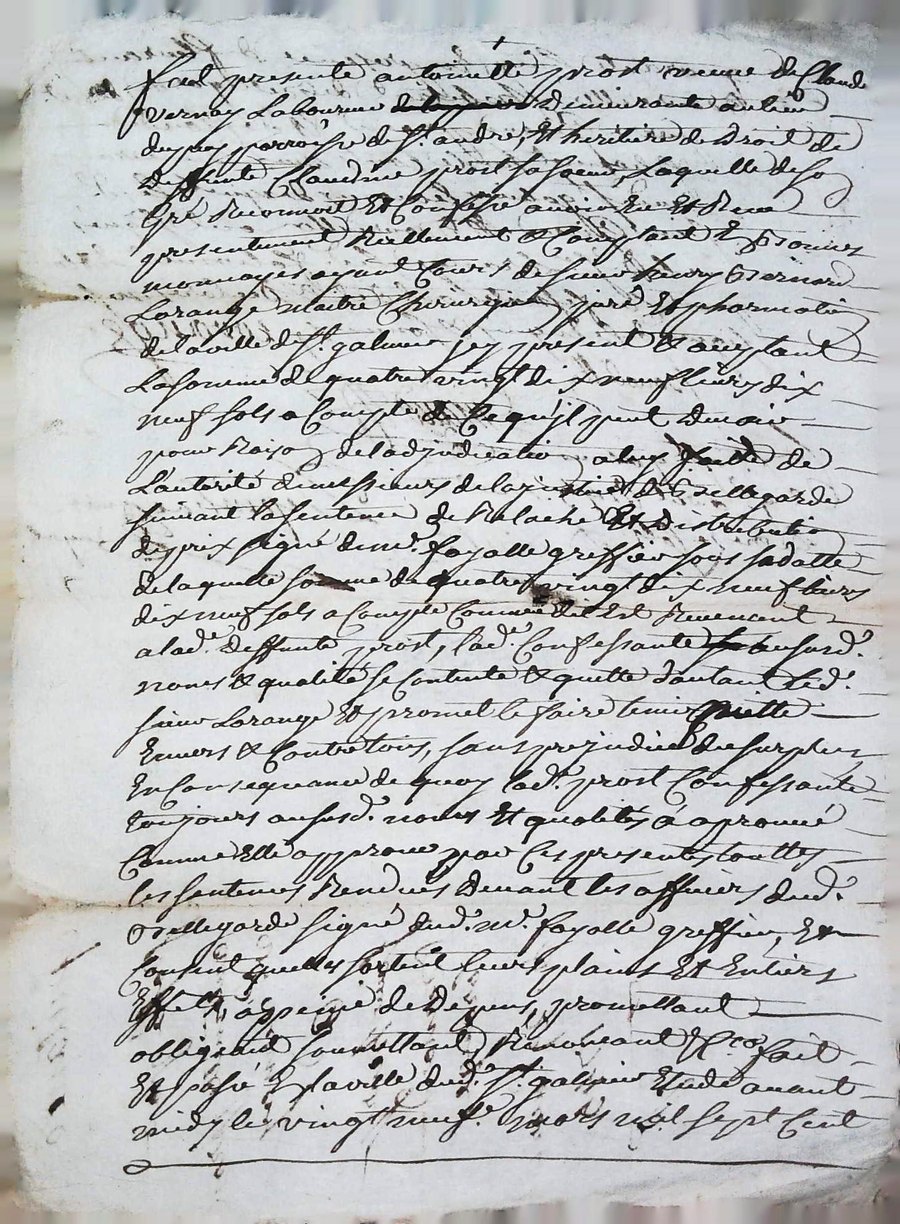 +
fut presente antoinette prost veuve de Claude
vernay Laboureur demeurante au lieu
du puy parroisse de St. andré, Et heritiere de Droit de
Deffunte Claudine prost sa soeur, Laquelle de so
gré Reconnoit Et Confesse avoir Eu Et Receu
presentement Reellement & Comptant En bonnes
monnoyes ayant Cours de sieur bernard
Lorange maitre Chirurgien juré Et pharmatien
de la ville de St. galmier jcy present & aceptant
La somme de quatre vingt dix neuf livres dix
neuf sols a Compte de Ce qu'jl peut devoir
pour Raison de ladjudication a luy faitte de
L'autorité de messieurs de la justice de Bellegarde
suivant la sentence de Relache Et Distribution
de prix signé de mr. fayolle greffier sous sa datte
de laquelle somme de quatre vingt dix neuf livres
dix neuf sols a Compte Comme dit Est Revenant
a lade. deffunte prost, lade. Confessante aususd.
noms & qualité se Contente & quitte d'autant Led.
sieur Lorange Et promet le faire tenir quitte
Envers & Contre tous, sans prejudice du surplus
En Consequance de quoy lad. prost Confessante
toujours aususd. noms Et qualités a aprouvé
Comme Elle approuve par Ces presentes touttes
les sentences Rendues devant les officiers dud.
Bellegarde signé dud. mr. fayolle greffier, Et
Consent quelles sortent leurs plains Et Entiers
Effets, a peine de Depens, promettant
obligeant soumettant Renonceant &ca. fait
Et passé En la ville dud. St. galmier Etude avant
midy le vingt neuf. mars mil sept Cent